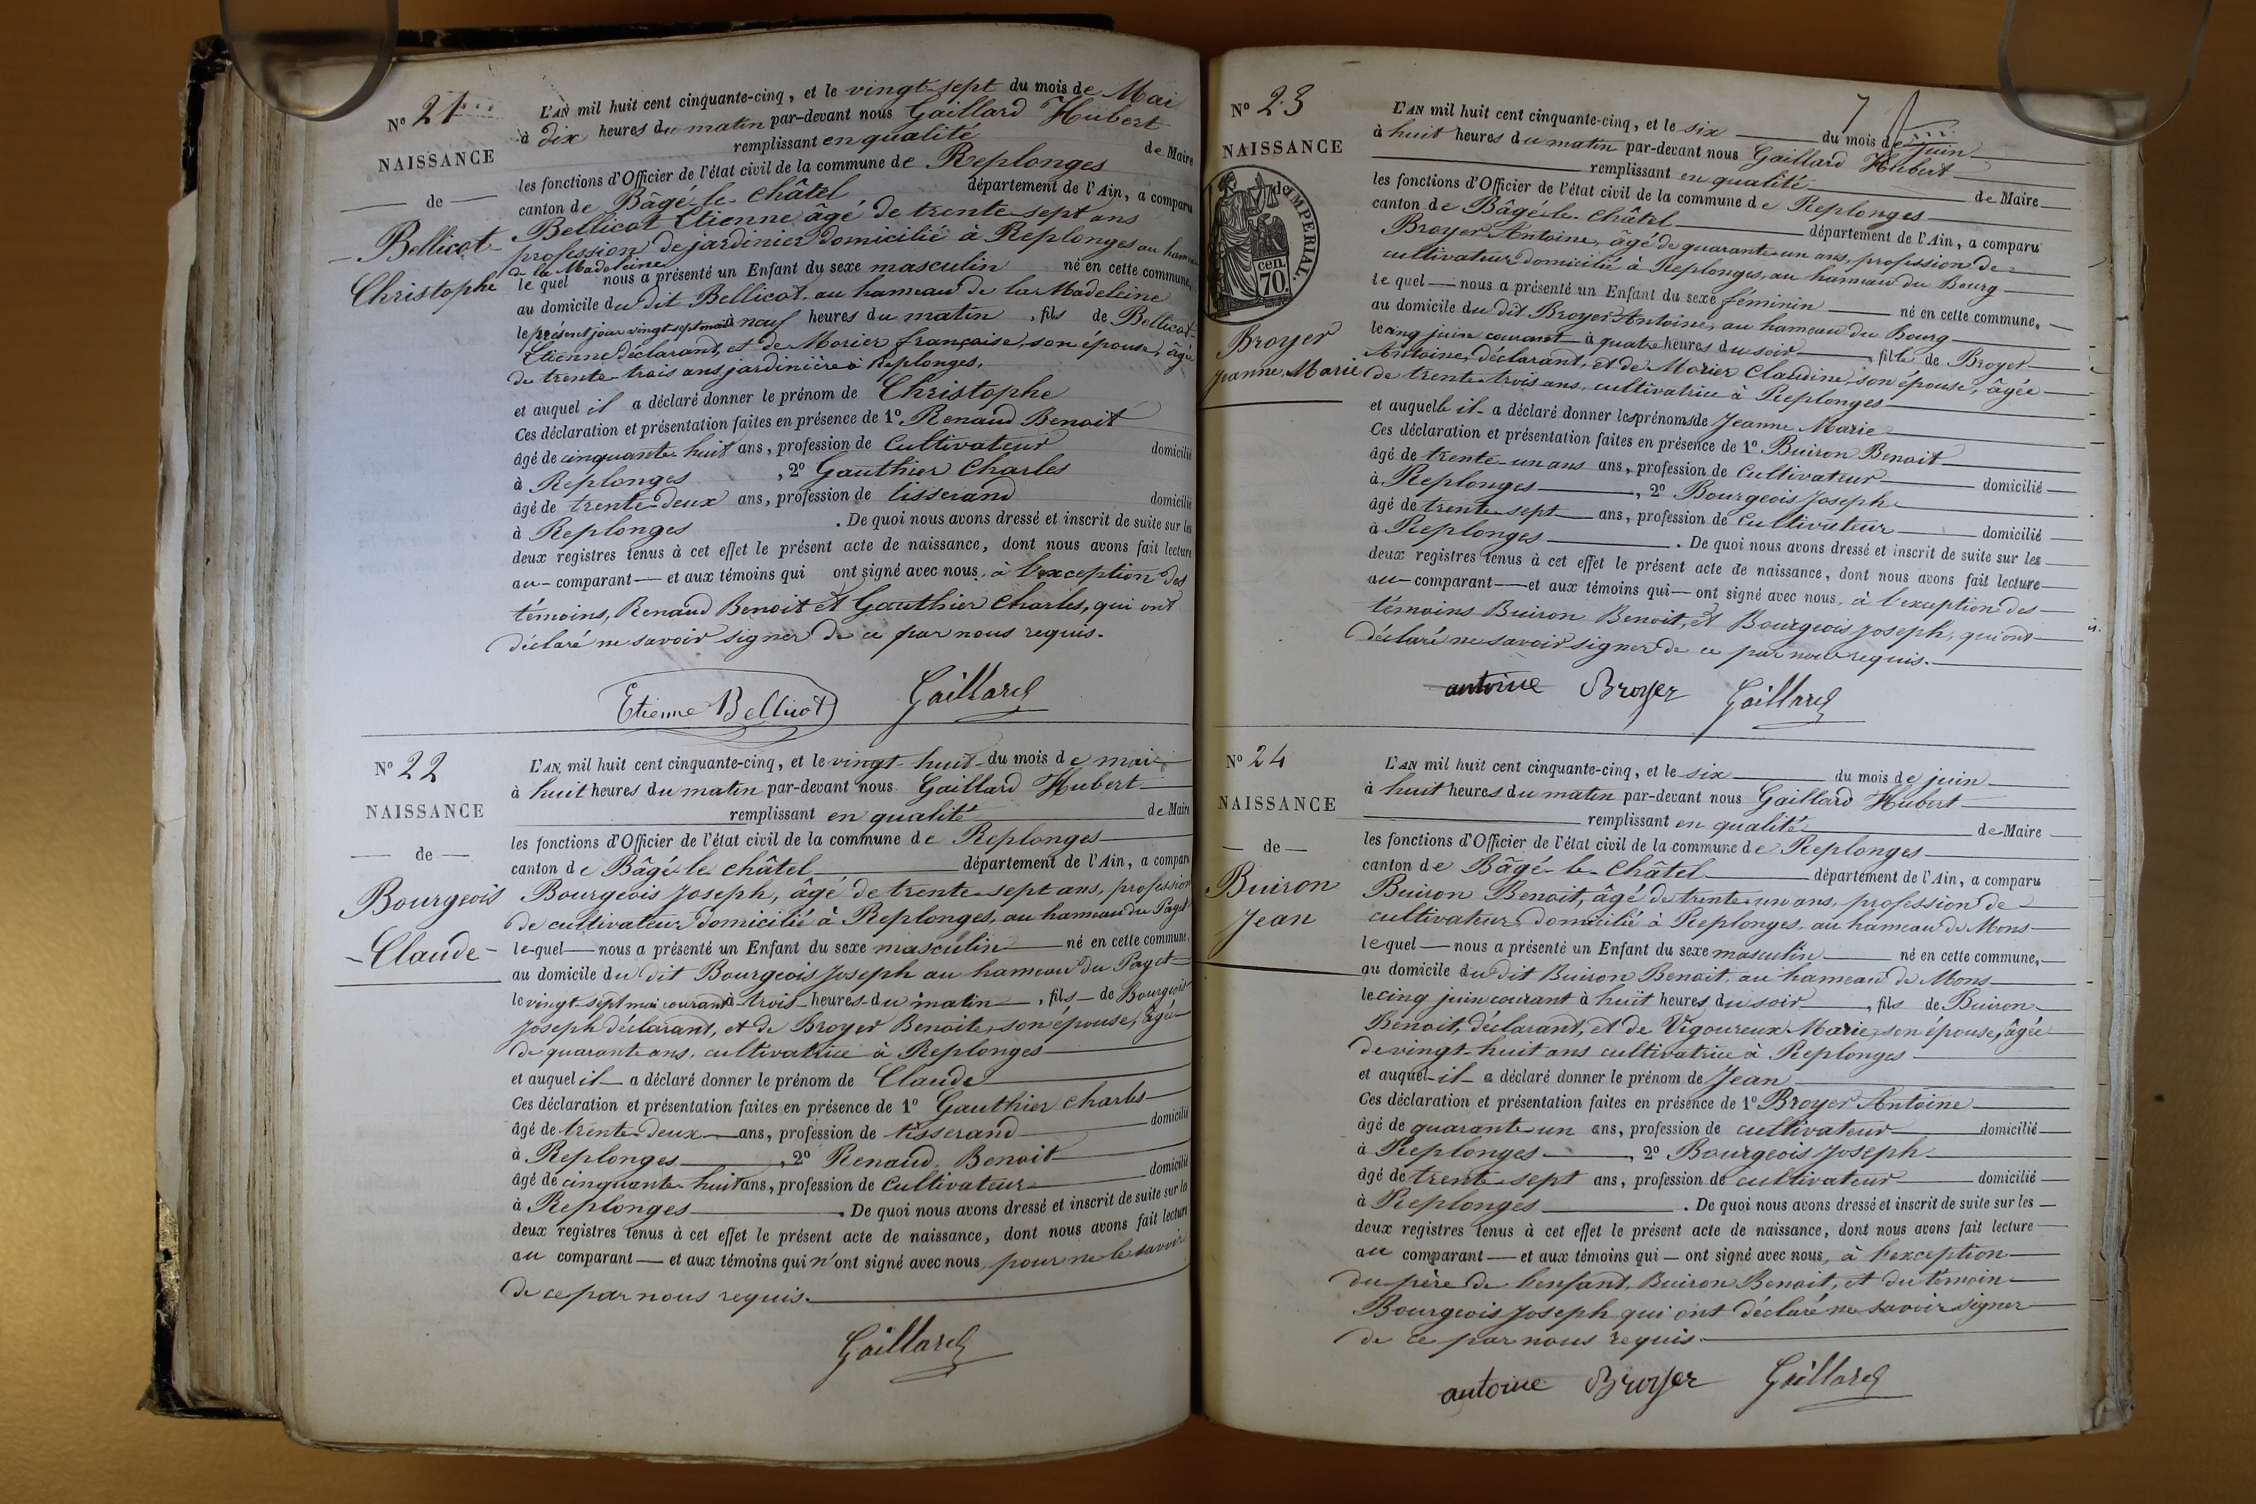 Nº 21
NAISSANCE
de
Bellicot
Christophe
L'AN mil huit cent cinquante-cinq, et le vingt-sept du mois de Mai
à dix heures du matin par-devant nous Gaillard Hubert
remplissant en qualité de Maire
les fonctions d'Officier de l'état civil de la commune de Replonges
canton de Bâgé-le-Châtel département de l'Ain, a comparu
Bellicot Etienne âgé de trente-sept ans
profession de jardinier domicilié à Replonges au hameau
de la Madeleine
lequel nous a présenté un Enfant du sexe masculin né en cette commune,
au domicile du dit Bellicot au hameau de la Madeleine
le présent jour vingt sept mai à neuf heures du matin, fils de Bellicot
Etienne déclarant, et de Morier française, son épouse, âgée
de trente-trois ans jardinière à Replonges.
et auquel il a déclaré donner le prénom de Christophe
Ces déclaration et présentation faites en présence de 1º Renaud Benoit
âgé de cinquante-huit ans, profession de Cultivateur domicilié
à Replonges, 2º Gauthier Charles
âgé de trente-deux ans, profession de tisserand domicilié
à Replonges. De quoi nous avons dressé et inscrit de suite sur les
deux registres tenus à cet effet le présent acte de naissance, dont nous avons fait lecture
au comparant et aux témoins qui ont signé avec nous, à l'exception des
témoins, Renaud Benoit et Gauthier Charles, qui ont
déclaré ne savoir signer de ce par nous requis.
Etienne Bellicot Gaillard
Nº 22
NAISSANCE
de
Bourgeois
Claude
L'AN mil huit cent cinquante-cinq, et le vingt-huit du mois de mai
à huit heures du matin par-devant nous Gaillard Hubert
remplissant en qualité de Maire
les fonctions d'Officier de l'état civil de la commune de Replonges
canton de Bâgé-le-Châtel département de l'Ain, a comparu
Bourgeois Joseph, âgé de trente-sept ans, profession
de cultivateur domicilié à Replonges, au hameau du Paget
lequel nous a présenté un Enfant du sexe masculin né en cette commune,
au domicile du dit Bourgeois Joseph au hameau du Paget
le vingt-sept mai courant à trois heures du matin, fils de Bourgeois
Joseph déclarant, et de Broyer Benoite, son épouse, âgée
de quarante ans, cultivatrice à Replonges
et auquel il a déclaré donner le prénom de Claude
Ces déclaration et présentation faites en présence de 1º Gauthier Charles
âgé de trente-deux ans, profession de tisserand domicilié
à Replonges, 2º Renaud Benoit
âgé de cinquante-huit ans, profession de Cultivateur domicilié
à Replonges. De quoi nous avons dressé et inscrit de suite sur les
deux registres tenus à cet effet le présent acte de naissance, dont nous avons fait lecture
au comparant et aux témoins qui n'ont signé avec nous, pour ne le savoir
de ce par nous requis.
Gaillard
7
Nº 23
NAISSANCE
de
IMPERIAL.
70 cen.
Broyer
Jeanne Marie
L'AN mil huit cent cinquante-cinq, et le six du mois de juin
à huit heures du matin par-devant nous Gaillard Hubert
remplissant en qualité de Maire
les fonctions d'Officier de l'état civil de la commune de Replonges
canton de Bâgé-le-Châtel département de l'Ain, a comparu
Broyer Antoine, âgé de quarante-un ans, profession de
cultivateur domicilié à Replonges, au hameau du Bourg
lequel nous a présenté un Enfant du sexe féminin né en cette commune,
au domicile du dit Broyer Antoine, au hameau du Bourg
le cinq juin courant à quatre heures du soir, fille de Broyer
Antoine, déclarant, et de Morier Claudine, son épouse, âgée
de trente-trois ans, cultivatrice à Replonges
et auquelle il a déclaré donner les prénoms de Jeanne Marie
Ces déclaration et présentation faites en présence de 1º Buiron Benoit
âgé de trente-un ans ans, profession de Cultivateur domicilié
à Replonges, 2º Bourgeois Joseph
âgé de trente-sept ans, profession de Cultivateur domicilié
à Replonges. De quoi nous avons dressé et inscrit de suite sur les
deux registres tenus à cet effet le présent acte de naissance, dont nous avons fait lecture
au comparant et aux témoins qui ont signé avec nous, à l'exception des
témoins Buiron Benoit, et Bourgeois Joseph, qui ont
déclaré ne savoir signer de ce par nous requis.
antoine Broyer Gaillard
Nº 24
NAISSANCE
de
Buiron
Jean
L'AN mil huit cent cinquante-cinq, et le six du mois de juin
à huit heures du matin par-devant nous Gaillard Hubert
remplissant en qualité de Maire
les fonctions d'Officier de l'état civil de la commune de Replonges
canton de Bâgé-le-Châtel département de l'Ain, a comparu
Buiron Benoit, âgé de trente-un ans, profession de
cultivateur, domicilié à Replonges, au hameau de Mons
lequel nous a présenté un Enfant du sexe masculin né en cette commune,
au domicile du dit Buiron Benoit, au hameau de Mons
le cinq juin courant à huit heures du soir, fils de Buiron
Benoit, déclarant, et de Vigoureux Marie, son épouse, âgée
de vingt-huit ans cultivatrice à Replonges
et auquel il a déclaré donner le prénom de Jean
Ces déclaration et présentation faites en présence de 1º Broyer Antoine
âgé de quarante-un ans, profession de cultivateur domicilié
à Replonges, 2º Bourgeois Joseph
âgé de trente-sept ans, profession de cultivateur domicilié
à Replonges. De quoi nous avons dressé et inscrit de suite sur les
deux registres tenus à cet effet le présent acte de naissance, dont nous avons fait lecture
au comparant et aux témoins qui ont signé avec nous, à l'exception
du père de l'enfant, Buiron Benoit, et du témoin
Bourgeois Joseph qui ont déclaré ne savoir signer
de ce par nous requis.
antoine Broyer Gaillard